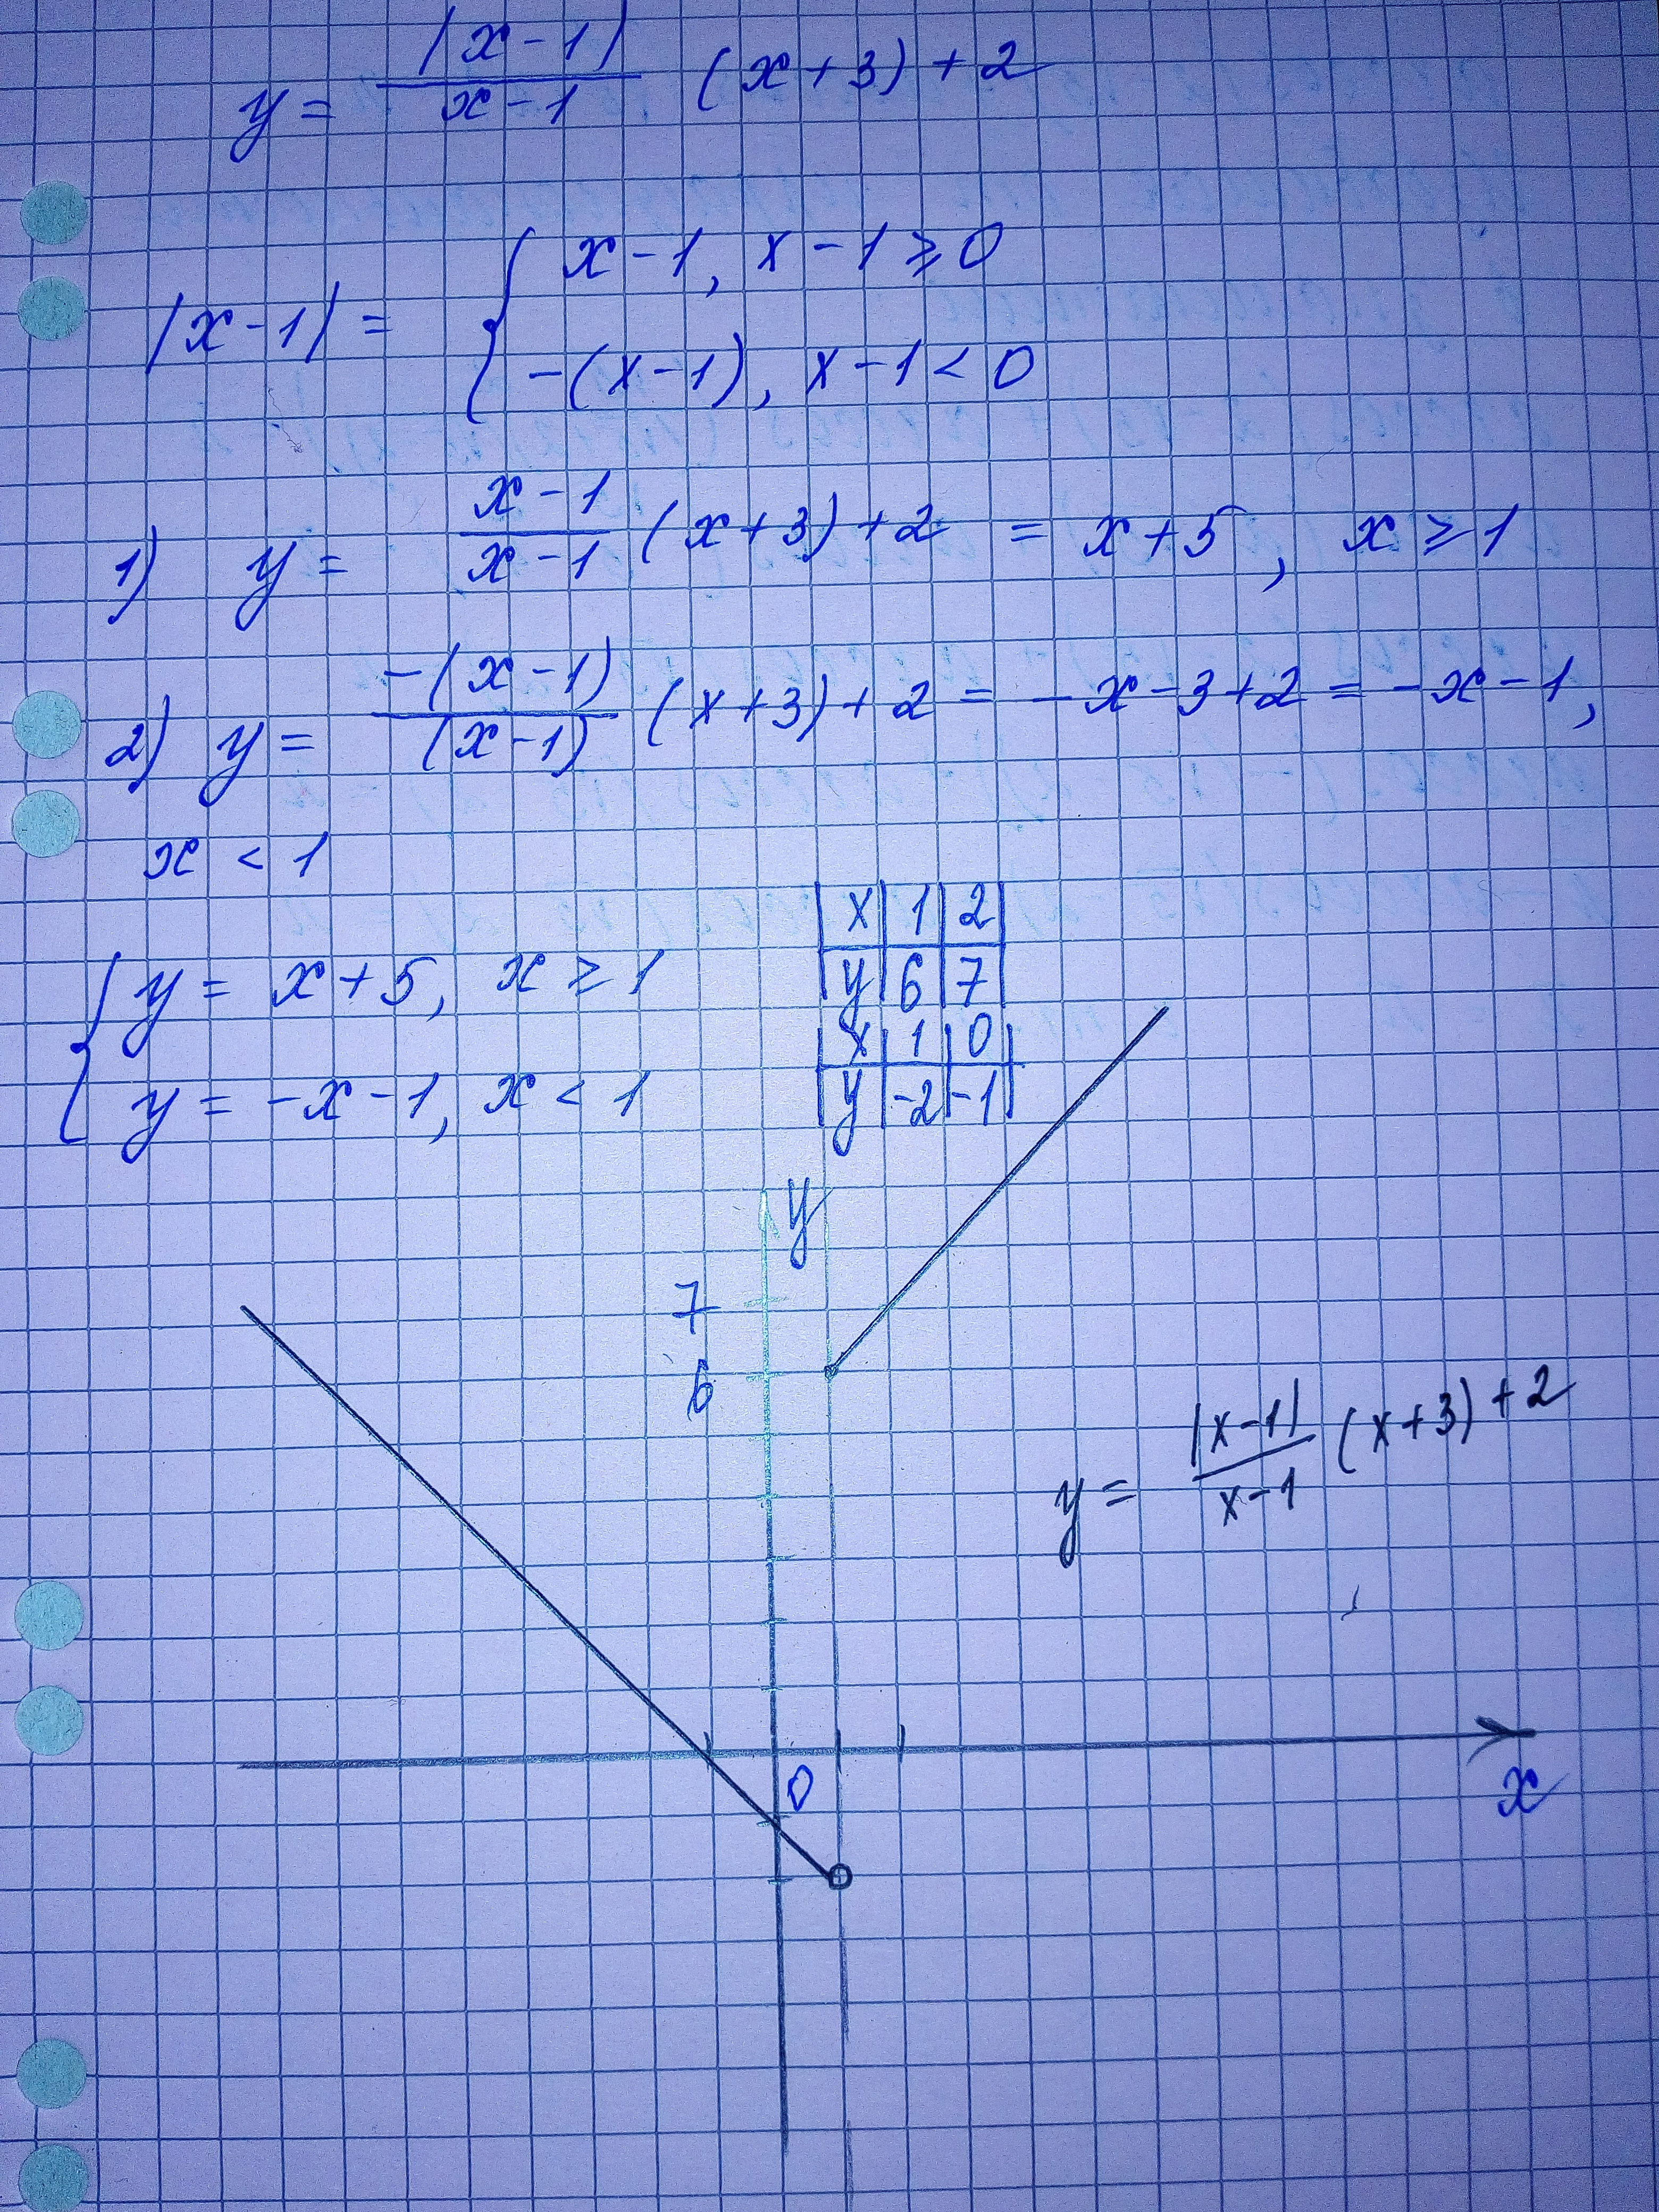 y = |x-1|/x-1 (x+3)+2
|x-1| = { x-1, x-1 ⩾ 0
-(x-1), x-1 < 0
1) y = x-1/x-1 (x+3)+2 = x+5, x ⩾ 1
2) y = -(x-1)/(x-1) (x+3)+2 = -x-3+2 = -x-1,
x < 1
{ y = x+5, x ⩾ 1
y = -x-1, x < 1
x 1 2
y 6 7
x 1 0
y -2 -1
y
7
6
y = |x-1|/x-1 (x+3)+2
0
x